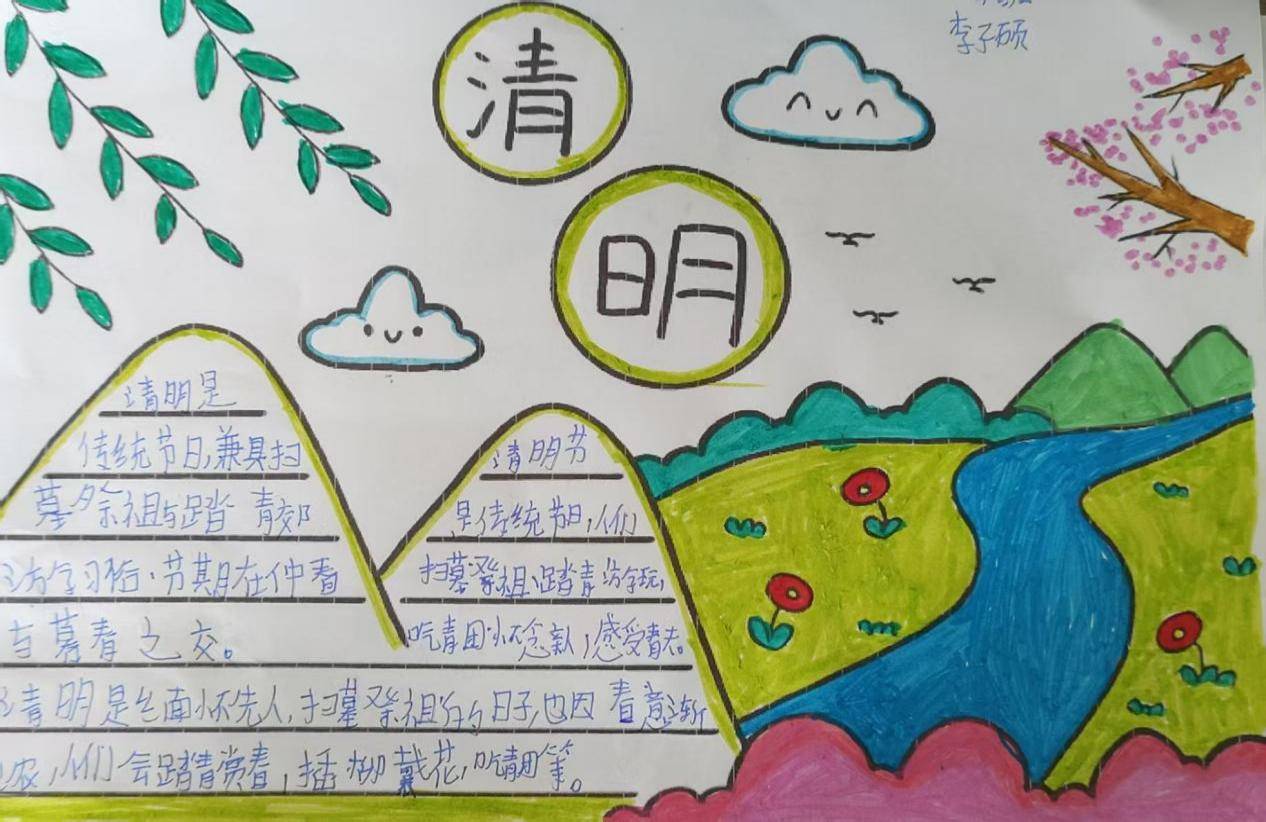 李子硕
清
明
清明是
传统节日，兼具扫
墓祭祖与踏 青郊
习俗。节期在仲春
与暮春之交。
清明节
是传统节日，人们
扫墓祭祖、踏青
吃青团怀念亲人，感受春天。
清明是 缅怀先人，扫墓祭祖的日子，也因 春意渐
浓，人们会踏青赏春，插柳戴花，吃青团等。